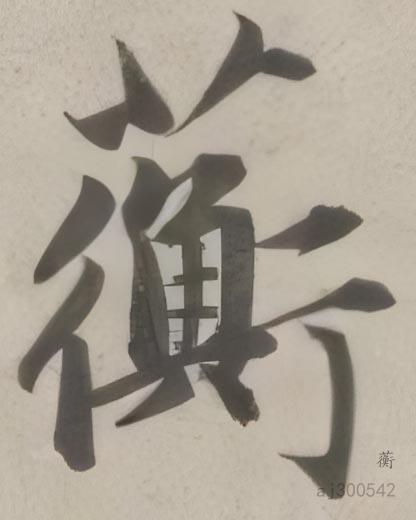 蘅
蘅
aj300542